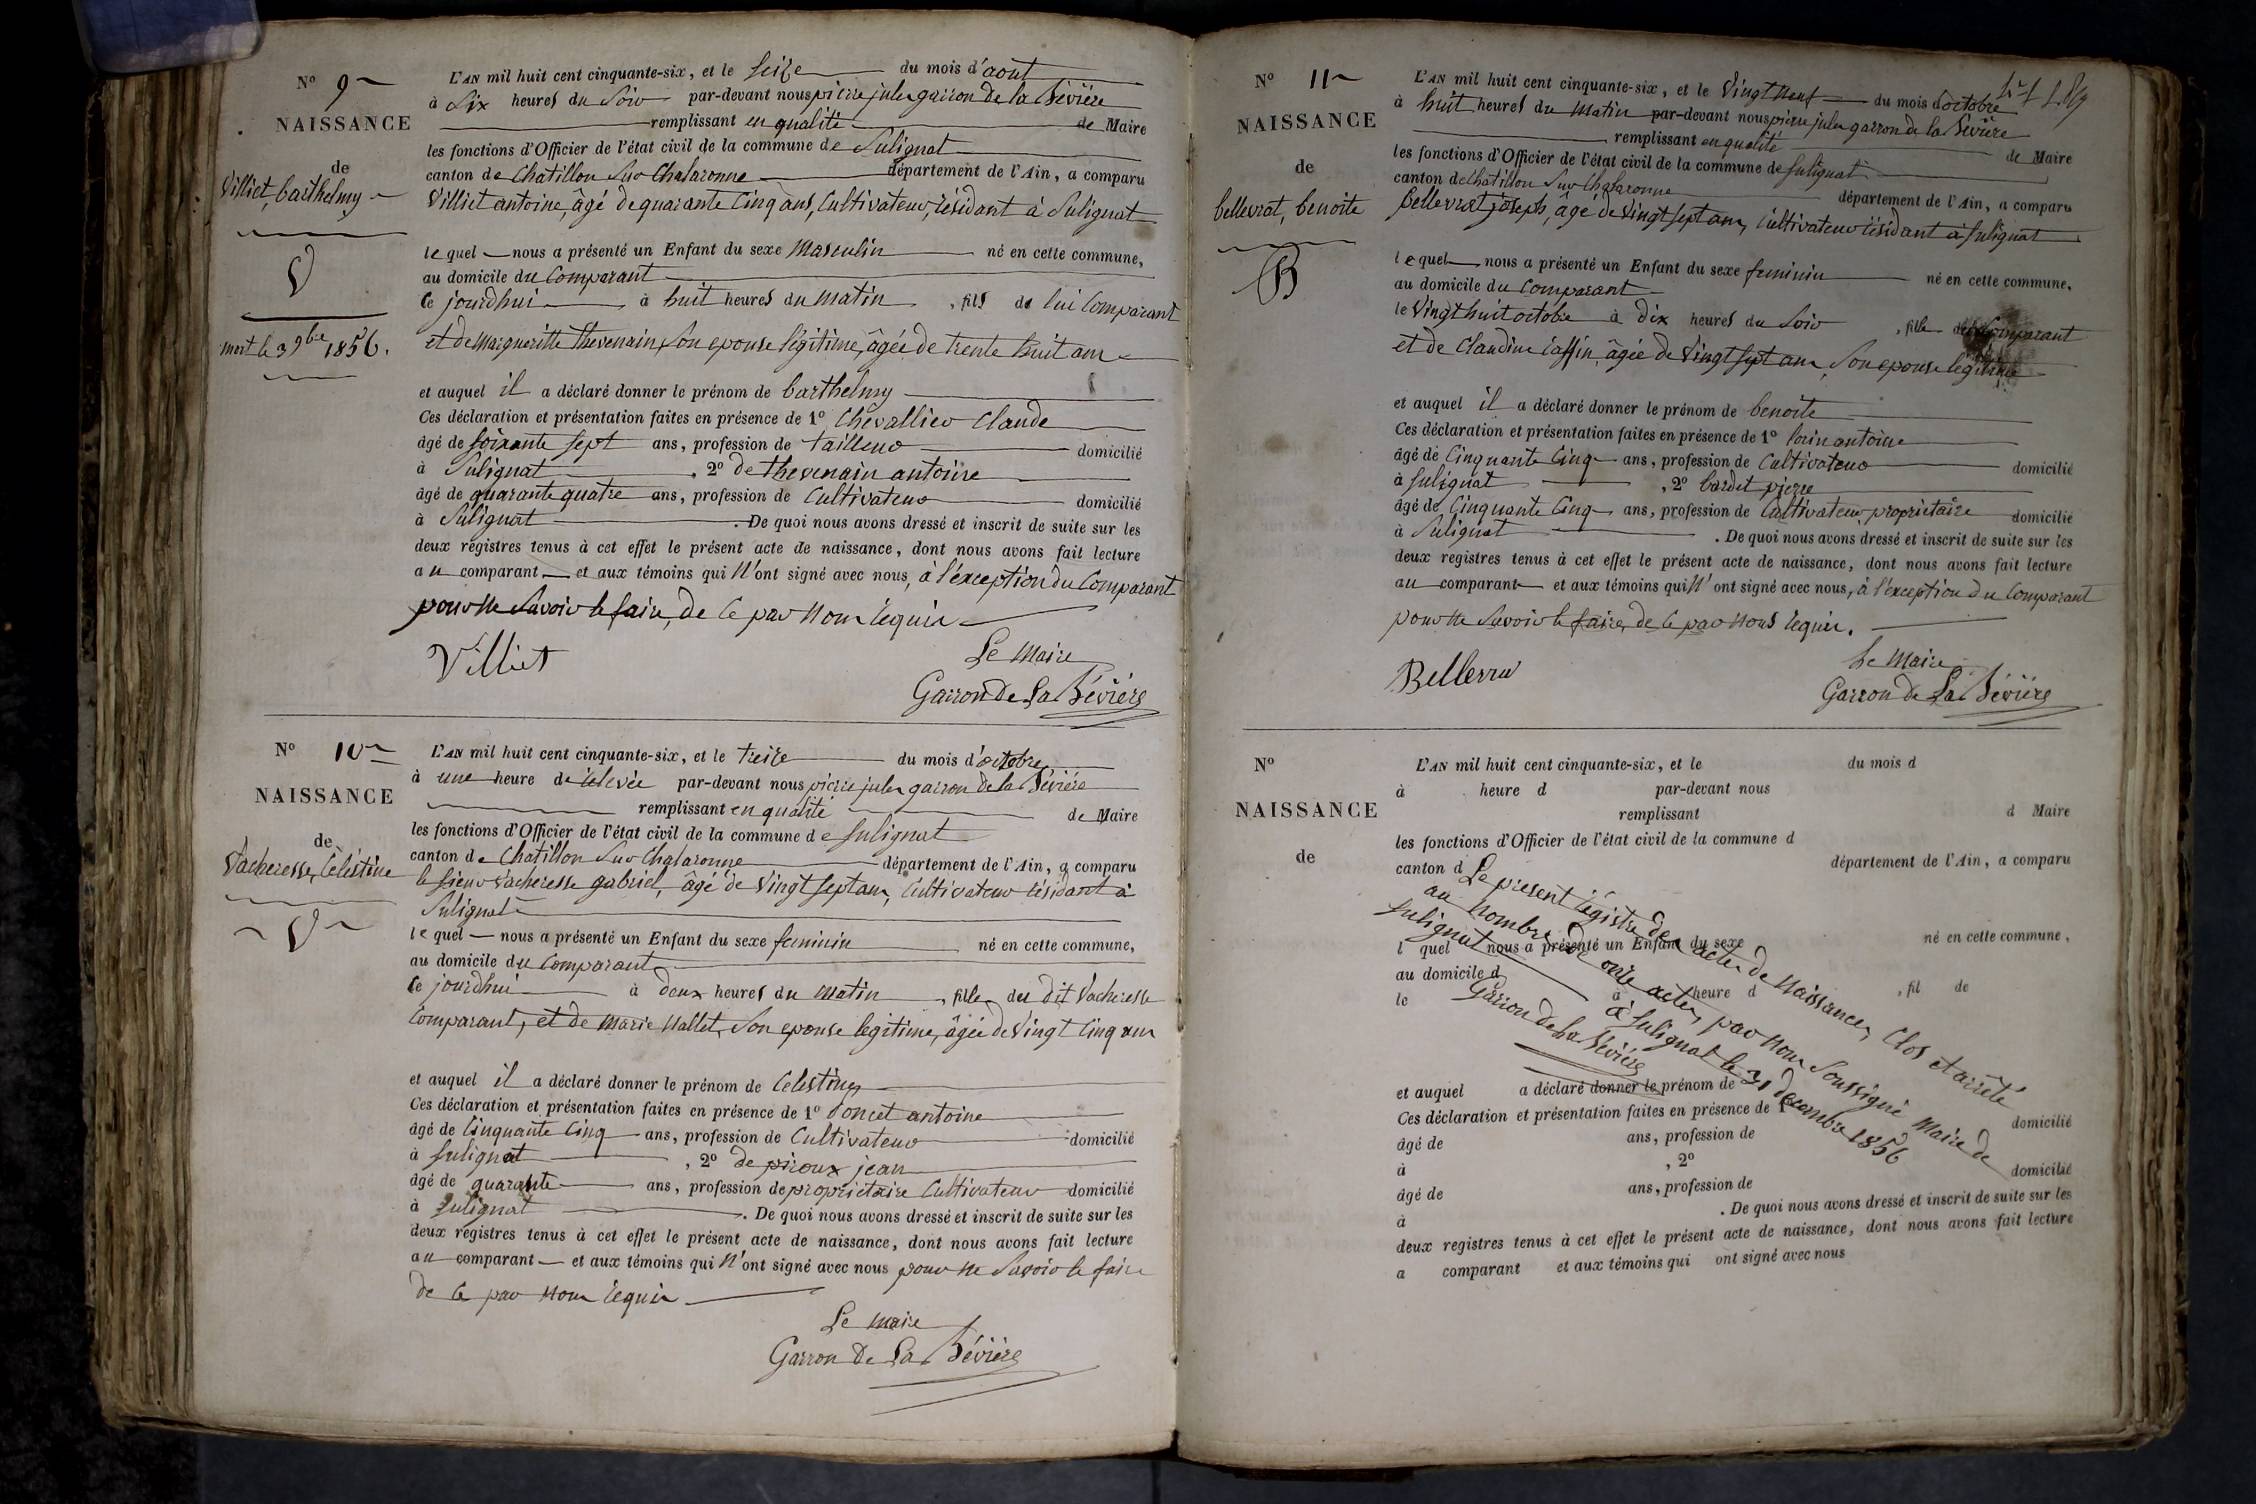 N° 9
NAISSANCE
de
Villiet, barthelmy
mort le 3 9bre 1856.
L'AN mil huit cent cinquante-six, et le seize du mois d'août
à six heures du soir par-devant nous pierre jules garron de la Bévière
remplissant en qualité de Maire
les fonctions d'Officier de l'état civil de la commune de Sulignat
canton de Chatillon sur Chalaronne département de l'Ain, a comparu
Villiet antoine, âgé de quarante cinq ans, Cultivateur, résidant à Sulignat
le quel nous a présenté un Enfant du sexe masculin né en cette commune,
au domicile du comparant
ce jourdhui à huit heures du matin, fils de lui Comparant
et de Margueritte thevenain, son epouse légitime, âgée de trente huit ans
et auquel il a déclaré donner le prénom de barthelmy
Ces déclaration et présentation faites en présence de 1° Chevallier Claude
âgé de soixante sept ans, profession de tailleur domicilié
à Sulignat, 2° de thevenain antoine
âgé de quarante quatre ans, profession de Cultivateur domicilié
à Sulignat. De quoi nous avons dressé et inscrit de suite sur les
deux registres tenus à cet effet le présent acte de naissance, dont nous avons fait lecture
au comparant et aux témoins qui n'ont signé avec nous, à l'exception du Comparant
pour ne savoir le faire, de ce par nous requis
Villiet
Le Maire
Garron de La Bévière
N° 10
NAISSANCE
de
Vacheresse, Célestine
L'AN mil huit cent cinquante-six, et le treize du mois d'octobre
à une heure de relevée par-devant nous pierre jules garron de la Bévière
remplissant en qualité de Maire
les fonctions d'Officier de l'état civil de la commune de Sulignat
canton de Chatillon sur Chalaronne département de l'Ain, a comparu
le sieur Vacheresse gabriel, âgé de vingt sept ans, Cultivateur résidant à
Sulignat
le quel nous a présenté un Enfant du sexe feminin né en cette commune,
au domicile du comparant
ce jourdhui à deux heures du matin, fille du dit Vacheresse
comparant, et de Marie Nallet, son epouse legitime, âgée de vingt cinq ans
et auquel il a déclaré donner le prénom de Celestine
Ces déclaration et présentation faites en présence de 1° Poncet antoine
âgé de Cinquante Cinq ans, profession de Cultivateur domicilié
à Sulignat, 2° de piroux jean
âgé de quarante ans, profession de proprietaire Cultivateur domicilié
à Sulignat. De quoi nous avons dressé et inscrit de suite sur les
deux registres tenus à cet effet le présent acte de naissance, dont nous avons fait lecture
au comparant et aux témoins qui n'ont signé avec nous pour ne savoir le faire
de ce par nous requis
Le maire
Garron de La Bévière
N° 11
NAISSANCE
de
bellevrat, benoite
B
L'AN mil huit cent cinquante-six, et le vingt neuf du mois d'octobre
à huit heures du matin par-devant nous pierre jules garron de la Bévière
remplissant en qualité de Maire
les fonctions d'Officier de l'état civil de la commune de Sulignat
canton de Chatillon sur Chalaronne département de l'Ain, a comparu
bellevrat joseph, âgé de vingt sept ans, Cultivateur résidant à Sulignat
le quel nous a présenté un Enfant du sexe feminin né en cette commune,
au domicile du comparant
le vingt huit octobre à dix heures du soir, fille du comparant
et de Claudine caffin, âgée de vingt sept ans, son epouse légitime
et auquel il a déclaré donner le prénom de benoite
Ces déclaration et présentation faites en présence de 1° Morin antoine
âgé de Cinquante Cinq ans, profession de Cultivateur domicilié
à Sulignat, 2° bardet pierre
âgé de Cinquante Cinq ans, profession de Cultivateur proprietaire domicilié
à Sulignat. De quoi nous avons dressé et inscrit de suite sur les
deux registres tenus à cet effet le présent acte de naissance, dont nous avons fait lecture
au comparant et aux témoins qui n'ont signé avec nous, à l'exception du Comparant
pour ne savoir le faire, de ce par nous requis.
Bellevra
Le Maire
Garron de La Bévière
N°
NAISSANCE
de
L'AN mil huit cent cinquante-six, et le du mois d
à heure d par-devant nous
remplissant d Maire
les fonctions d'Officier de l'état civil de la commune d
canton d département de l'Ain, a comparu
Le présent régistre des actes de Naissances, Clos et arrêté
au nombre de onze actes, par nous soussigné Maire de
Sulignat
à Sulignat le 31 decembre 1856
Garron de la Bévière
l quel nous a présenté un Enfant du sexe né en cette commune,
au domicile d
le à heure d, fil de
et auquel a déclaré donner le prénom de
Ces déclaration et présentation faites en présence de 1°
domicilié
âgé de ans, profession de
à, 2° domicilié
âgé de ans, profession de
à. De quoi nous avons dressé et inscrit de suite sur les
deux registres tenus à cet effet le présent acte de naissance, dont nous avons fait lecture
a comparant et aux témoins qui ont signé avec nous